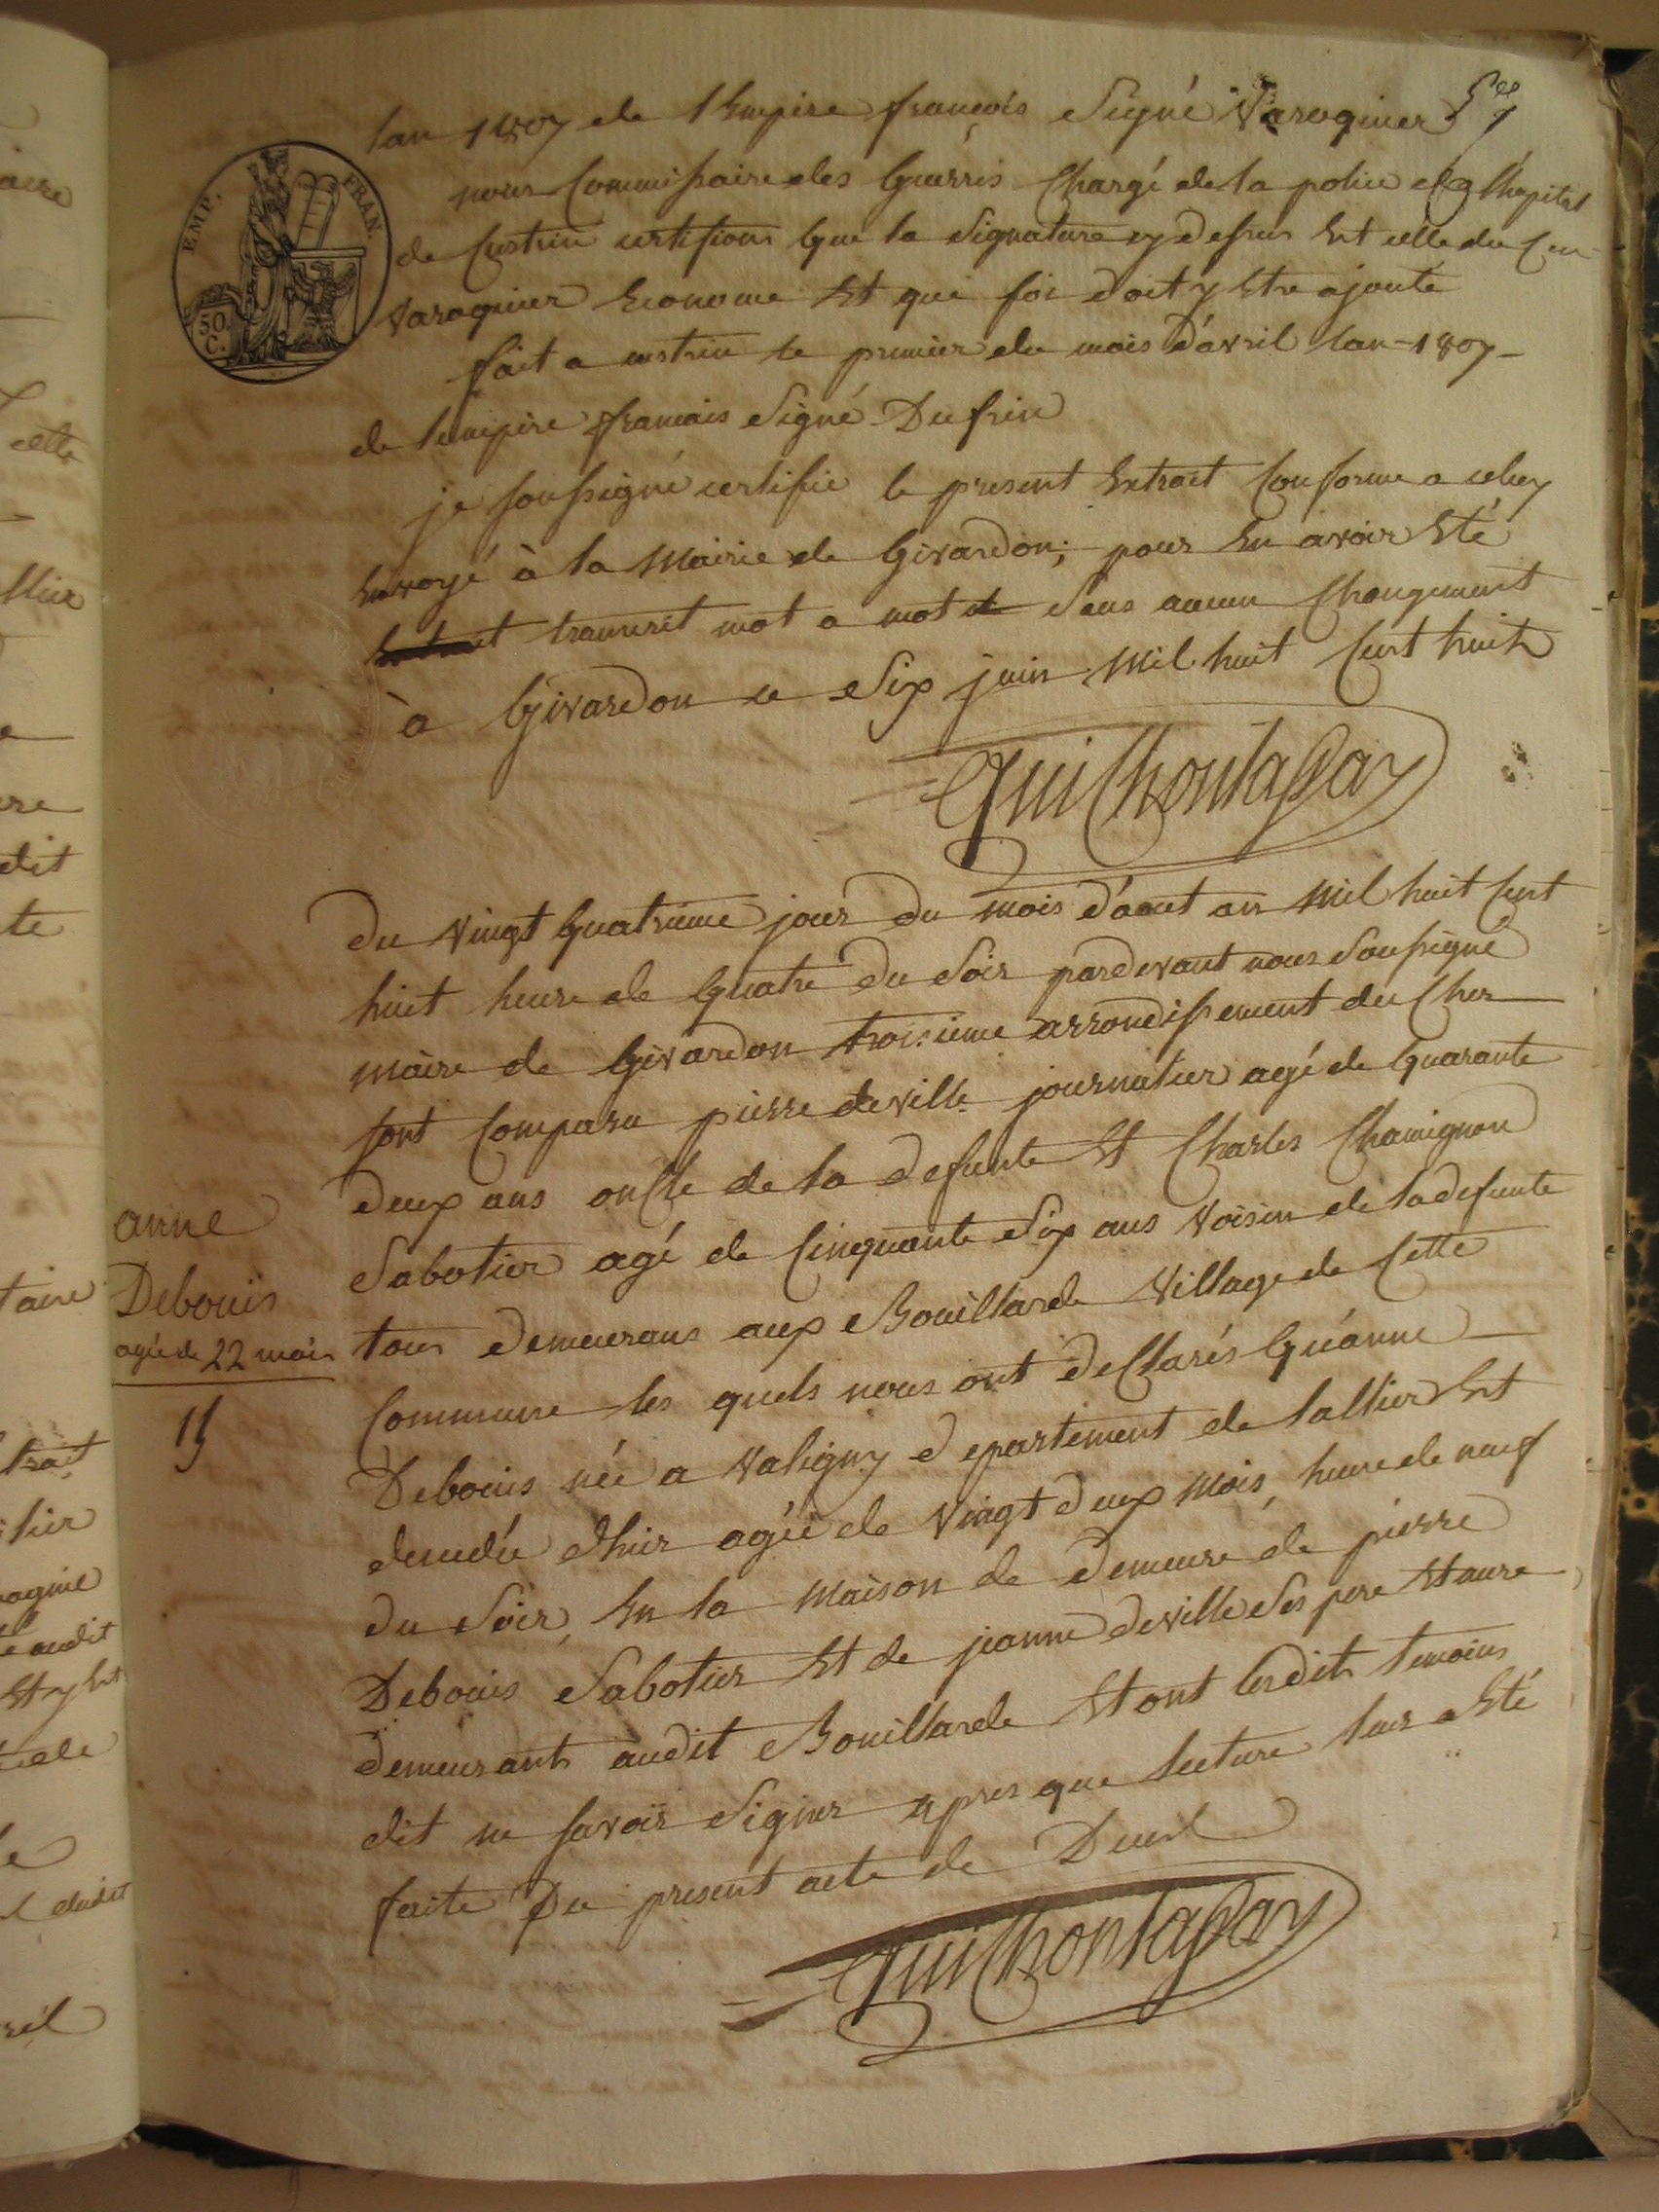 lan 1807 de lEmpire francois Signé Varoquier
EMP. FRAN.
50. C.
nous Commissaire des Guerris Chargé de la police de lhopital
de Custrin certifions que la Signature cy dessus Est celle du
Varoquier Econome Et que foi doit y Etre ajouté
fait a custrin le premier du mois d'avril lan 1807
de lempire francais Signé Dufrin
je soussigné certifie le present Extrait Conforme a celuy
Envoyé à la Mairie de Givardon; pour En avoir Eté
transcrit mot a mot Sans aucun Changement
à Givardon ce Six juin Mil huit Cent huit
Du Vingt quatrieme jour du mois d'aout an Mil huit Cent
huit heure de quatre du Soir pardevant nous Soussigné
maire de Givardon troisieme arrondissement du Cher
sont Comparu pierre deville journalier agé de quarante
deux ans oncle de la defunte Et Charles Chamignon
Sabotier agé de Cinquante Six ans Voisin de la defunte
tous demeurans aux Bouillards Village de Cette
Commune les quels nous ont declarés qu'anne
Debouis née a Valigny departement de lallier Est
decedée d'hier agée de Vingt deux Mois, heure de neuf
du Soir, En la Maison de demeure de pierre
Debouis Sabotier Et de jeanne deville Ses pere Et mere
demeurants audit Bouillards Et ont lesdits temoins
dit ne savoir Signer apres que lecture leur a Eté
faite Du present acte de Deuil
anne
Debouis
agée de 22 mois
15